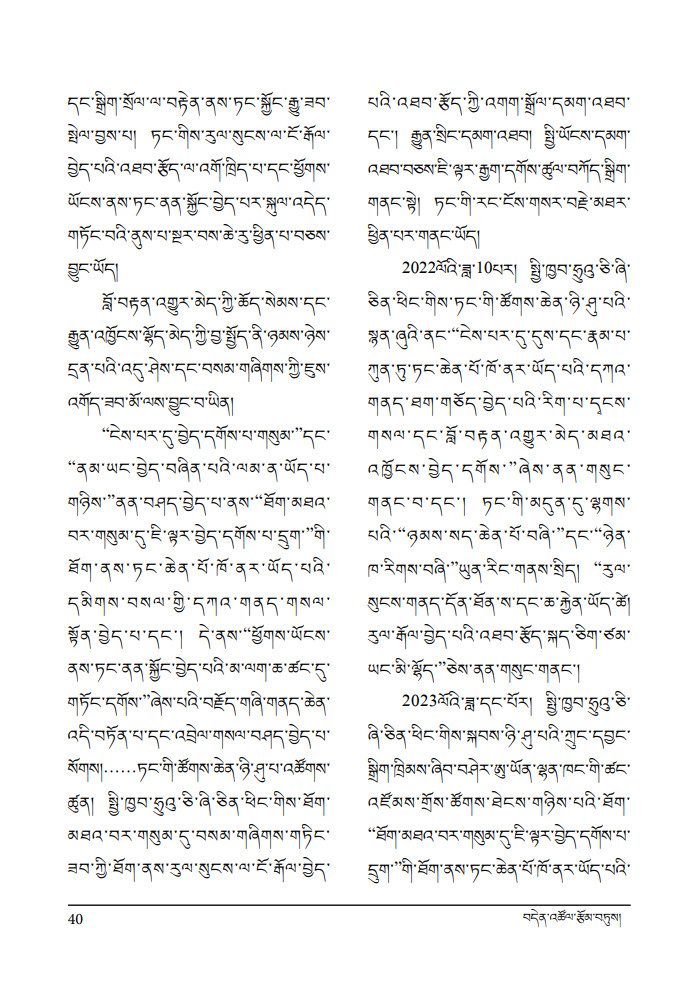 དང་སྒྲིག་སྲོལ་ལ་བརྟེན་ནས་ཏང་སྐྱོང་རྒྱུ་ཟབ་
སྤེལ་བྱས་པ། ཏང་གིས་རུལ་སུངས་ལ་ངོ་རྒོལ་
བྱེད་པའི་འཐབ་རྩོད་ལ་འགོ་ཁྲིད་པ་དང་ཕྱོགས་
ཡོངས་ནས་ཏང་ནན་སྐྱོང་བྱེད་པར་སྐུལ་འདེད་
གཏོང་བའི་ནུས་པ་སྔར་བས་ཆེ་རུ་ཕྱིན་པ་བཅས་
བྱུང་ཡོད།
བློ་བརྟན་འགྱུར་མེད་ཀྱི་ཆོད་སེམས་དང་
རྒྱུན་འཁྱོངས་ལྷོད་མེད་ཀྱི་བྱ་སྤྱོད་ནི་ཉམས་ཉེས་
དྲན་པའི་འདུ་ཤེས་དང་བསམ་གཞིགས་ཀྱི་ཇུས་
འགོད་ཟབ་མོ་ལས་བྱུང་བ་ཡིན།
“ངེས་པར་དུ་བྱེད་དགོས་པ་གསུམ་”དང་
“ནམ་ཡང་བྱེད་བཞིན་པའི་ལམ་ན་ཡོད་པ་
གཉིས་”ནན་བཤད་བྱེད་པ་ནས་“ཐོག་མཐའ་
བར་གསུམ་དུ་ཇི་ལྟར་བྱེད་དགོས་པ་དྲུག་”གི་
ཐོག་ནས་ཏང་ཆེན་པོ་ཁོ་ནར་ཡོད་པའི་
དམིགས་བསལ་གྱི་དཀའ་གནད་གསལ་
སྟོན་བྱེད་པ་དང་། དེ་ནས་“ཕྱོགས་ཡོངས་
ནས་ཏང་ནན་སྐྱོང་བྱེད་པའི་མ་ལག་ཆ་ཚང་དུ་
གཏོང་དགོས་”ཞེས་པའི་བརྗོད་གཞི་གནད་ཆེན་
འདི་བཏོན་པ་དང་འབྲེལ་གསལ་བཤད་བྱེད་པ་
སོགས།……ཏང་གི་ཚོགས་ཆེན་ཉི་ཤུ་པ་འཚོགས་
ཚུན། སྤྱི་ཁྱབ་ཧྲུའུ་ཅི་ཞི་ཅིན་ཕིང་གིས་ཐོག་
མཐའ་བར་གསུམ་དུ་བསམ་གཞིགས་གཏིང་
ཟབ་ཀྱི་ཐོག་ནས་རུལ་སུངས་ལ་ངོ་རྒོལ་བྱེད་
པའི་འཐབ་རྩོད་ཀྱི་འགག་སྒྲོལ་དམག་འཐབ་
དང་། རྒྱུན་སྲིང་དམག་འཐབ། སྤྱི་ཡོངས་དམག་
འཐབ་བཅས་ཇི་ལྟར་རྒྱག་དགོས་ཚུལ་བཀོད་སྒྲིག་
གནང་སྟེ། ཏང་གི་རང་ངོས་གསར་བརྗེ་མཐར་
ཕྱིན་པར་གནང་ཡོད།
2022ལོའི་ཟླ་10པར། སྤྱི་ཁྱབ་ཧྲུའུ་ཅི་ཞི་
ཅིན་ཕིང་གིས་ཏང་གི་ཚོགས་ཆེན་ཉི་ཤུ་པའི་
སྙན་ཞུའི་ནང་“ངེས་པར་དུ་དུས་དང་རྣམ་པ་
ཀུན་ཏུ་ཏང་ཆེན་པོ་ཁོ་ནར་ཡོད་པའི་དཀའ་
གནད་ཐག་གཅོད་བྱེད་པའི་རིག་པ་དྭངས་
གསལ་དང་བློ་བརྟན་འགྱུར་མེད་མཐའ་
འཁྱོངས་བྱེད་དགོས་”ཞེས་ནན་གསུང་
གནང་བ་དང་། ཏང་གི་མདུན་དུ་ལྷགས་
པའི་“ཉམས་སད་ཆེན་པོ་བཞི་”དང་“ཉེན་
ཁ་རིགས་བཞི་”ཡུན་རིང་གནས་སྲིད། “རུལ་
སུངས་གནད་དོན་ཐོན་ས་དང་ཆ་རྐྱེན་ཡོད་ཚེ།
རུལ་རྒོལ་བྱེད་པའི་འཐབ་རྩོད་སྐད་ཅིག་ཙམ་
ཡང་མི་ལྷོད་”ཅེས་ནན་གསུང་གནང་།
2023ལོའི་ཟླ་དང་པོར། སྤྱི་ཁྱབ་ཧྲུའུ་ཅི་
ཞི་ཅིན་ཕིང་གིས་སྐབས་ཉི་ཤུ་པའི་ཀྲུང་དབྱང་
སྒྲིག་ཁྲིམས་ཞིབ་བཤེར་ཨུ་ཡོན་ལྷན་ཁང་གི་ཚང་
འཛོམས་གྲོས་ཚོགས་ཐེངས་གཉིས་པའི་ཐོག་
“ཐོག་མཐའ་བར་གསུམ་དུ་ཇི་ལྟར་བྱེད་དགོས་པ་
དྲུག་”གི་ཐོག་ནས་ཏང་ཆེན་པོ་ཁོ་ནར་ཡོད་པའི་
40
བདེན་འཚོལ་རྩོམ་བཏུས།